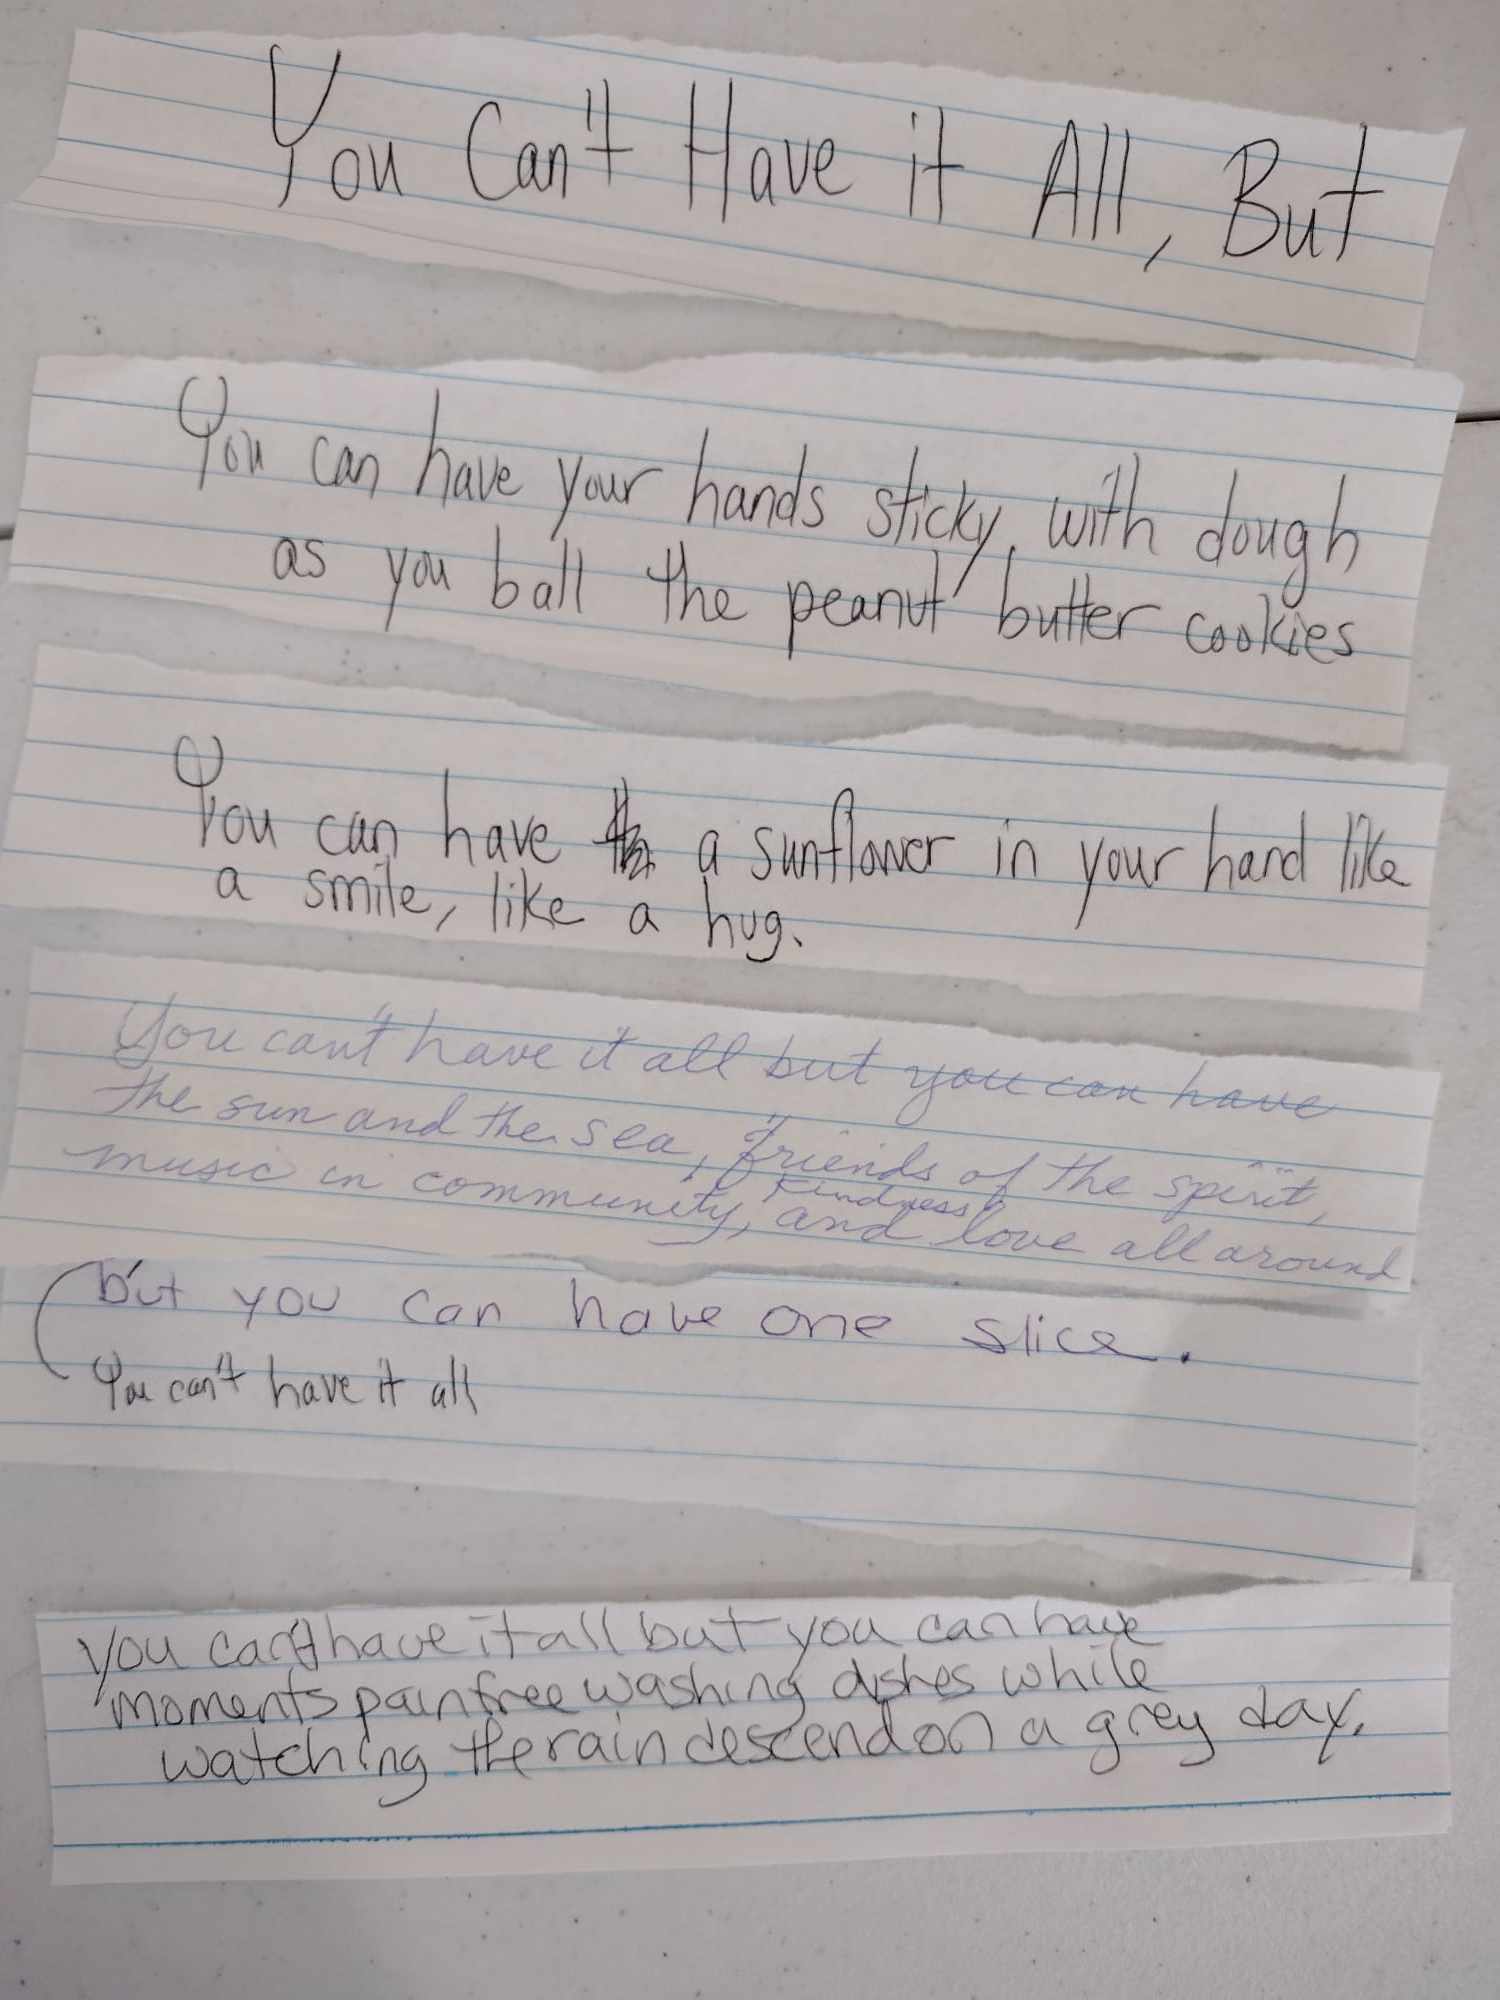 You Can't Have it All, But
You can have your hands sticky, with dough
as you ball the peanut butter cookies
You can have a sunflower in your hand like
a smile, like a hug.
You can't have it all but you can have
the sun and the sea, friends of the spirit,
music in community, kindness and love all around
but you can have one slice.
You can't have it all
you can't have it all but you can have
moments pain free washing dishes while
watching the rain descend on a grey day.